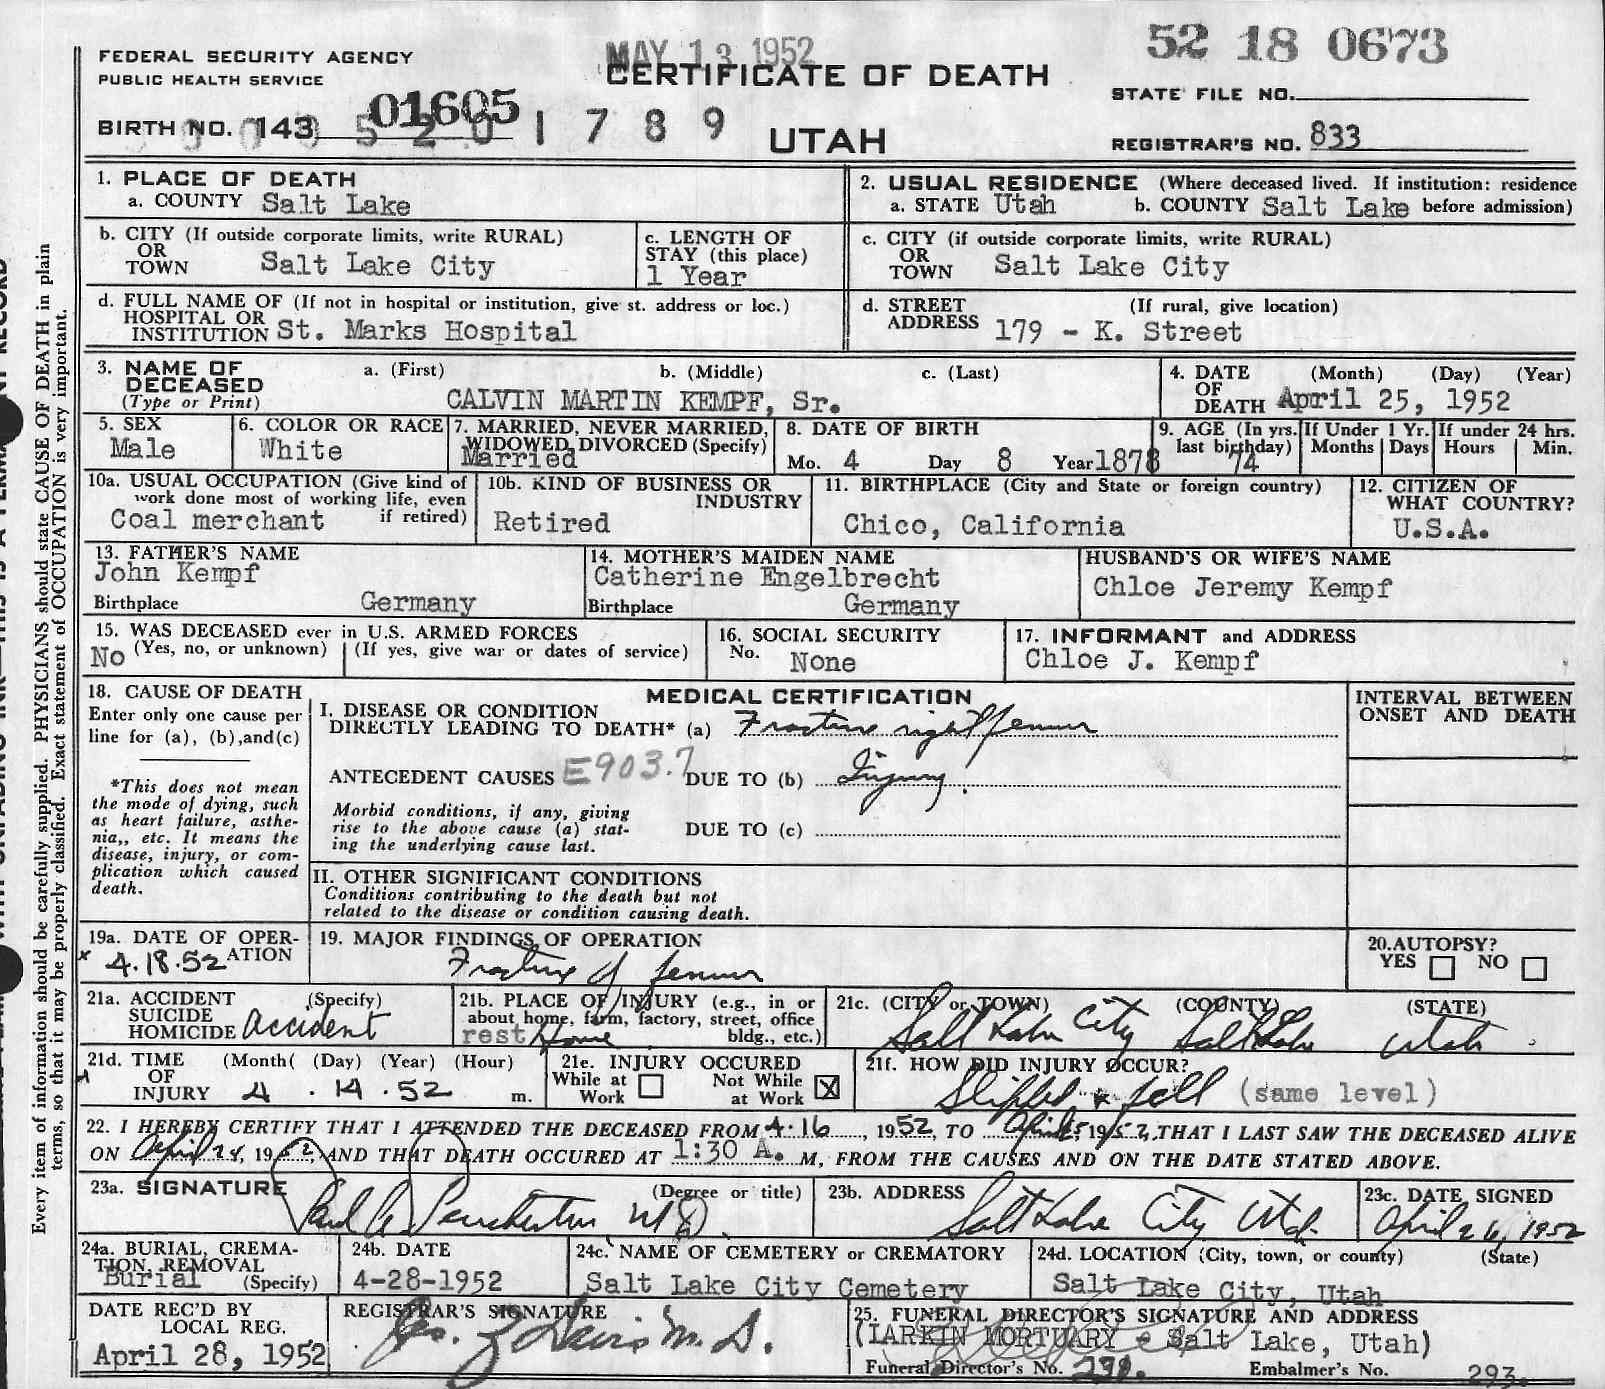 MAY 13 1952
52 18 0673
FEDERAL SECURITY AGENCY
PUBLIC HEALTH SERVICE
CERTIFICATE OF DEATH
STATE FILE NO.
BIRTH NO. 143 01605
1 7 8 9
UTAH
REGISTRAR'S NO. 833
1. PLACE OF DEATH
a. COUNTY Salt Lake
2. USUAL RESIDENCE (Where deceased lived. If institution: residence
a. STATE Utah b. COUNTY Salt Lake before admission)
b. CITY (If outside corporate limits, write RURAL)
OR
TOWN Salt Lake City
c. LENGTH OF
STAY (this place)
1 Year
c. CITY (if outside corporate limits, write RURAL)
OR
TOWN Salt Lake City
d. FULL NAME OF (If not in hospital or institution, give st. address or loc.)
HOSPITAL OR
INSTITUTION St. Marks Hospital
d. STREET (If rural, give location)
ADDRESS 179 - K. Street
3. NAME OF
DECEASED
(Type or Print)
a. (First) b. (Middle) c. (Last)
CALVIN MARTIN KEMPF, Sr.
4. DATE (Month) (Day) (Year)
OF
DEATH April 25, 1952
5. SEX
Male
6. COLOR OR RACE
White
7. MARRIED, NEVER MARRIED,
WIDOWED, DIVORCED (Specify)
Married
8. DATE OF BIRTH
Mo. 4 Day 8 Year 1878
9. AGE (In yrs.
last birthday)
74
If Under 1 Yr.
Months Days
If under 24 hrs.
Hours Min.
10a. USUAL OCCUPATION (Give kind of
work done most of working life, even
if retired)
Coal merchant
10b. KIND OF BUSINESS OR
INDUSTRY
Retired
11. BIRTHPLACE (City and State or foreign country)
Chico, California
12. CITIZEN OF
WHAT COUNTRY?
U.S.A.
13. FATHER'S NAME
John Kempf
Birthplace Germany
14. MOTHER'S MAIDEN NAME
Catherine Engelbrecht
Birthplace Germany
HUSBAND'S OR WIFE'S NAME
Chloe Jeremy Kempf
15. WAS DECEASED ever in U.S. ARMED FORCES
(Yes, no, or unknown) (If yes, give war or dates of service)
No
16. SOCIAL SECURITY
No.
None
17. INFORMANT and ADDRESS
Chloe J. Kempf
18. CAUSE OF DEATH
Enter only one cause per
line for (a), (b),and(c)
*This does not mean
the mode of dying, such
as heart failure, asthe-
nia,, etc. It means the
disease, injury, or com-
plication which caused
death.
MEDICAL CERTIFICATION
I. DISEASE OR CONDITION
DIRECTLY LEADING TO DEATH* (a) Fracture right femur
ANTECEDENT CAUSES E903.7 DUE TO (b) Injury.
Morbid conditions, if any, giving
rise to the above cause (a) stat-
ing the underlying cause last.
DUE TO (c)
II. OTHER SIGNIFICANT CONDITIONS
Conditions contributing to the death but not
related to the disease or condition causing death.
INTERVAL BETWEEN
ONSET AND DEATH
19a. DATE OF OPER-
ATION
4.18.52
19. MAJOR FINDINGS OF OPERATION
Fracture of femur
20. AUTOPSY?
YES NO
21a. ACCIDENT (Specify)
SUICIDE
HOMICIDE accident
21b. PLACE OF INJURY (e.g., in or
about home, farm, factory, street, office
bldg., etc.)
rest Home
21c. (CITY or TOWN) (COUNTY) (STATE)
Salt Lake City Salt Lake Utah
21d. TIME (Month( (Day) (Year) (Hour)
OF
INJURY 4 . 14 . 52 m.
21e. INJURY OCCURED
While at
Work
Not While
at Work X
21f. HOW DID INJURY OCCUR?
Slipped & fell (same level)
22. I HEREBY CERTIFY THAT I ATTENDED THE DECEASED FROM 4-16, 1952, TO April 25, 1952, THAT I LAST SAW THE DECEASED ALIVE
ON April 24, 1952, AND THAT DEATH OCCURED AT 1:30 A. M, FROM THE CAUSES AND ON THE DATE STATED ABOVE.
23a. SIGNATURE (Degree or title)
Paul A. M D.
23b. ADDRESS
Salt Lake City Utah
23c. DATE SIGNED
April 26, 1952
24a. BURIAL, CREMA-
TION, REMOVAL
Burial (Specify)
24b. DATE
4-28-1952
24c. NAME OF CEMETERY or CREMATORY
Salt Lake City Cemetery
24d. LOCATION (City, town, or county) (State)
Salt Lake City, Utah
DATE REC'D BY
LOCAL REG.
April 28, 1952
REGISTRAR'S SIGNATURE
Davis M. D.
25. FUNERAL DIRECTOR'S SIGNATURE AND ADDRESS
(LARKIN MORTUARY - Salt Lake, Utah)
Funeral Director's No. 231. Embalmer's No. 293.
Every item of information should be carefully supplied. PHYSICIANS should state CAUSE OF DEATH in plain
terms, so that it may be properly classified. Exact statement of OCCUPATION is very important.